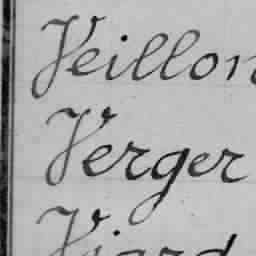 Veillon
Verger
Viard